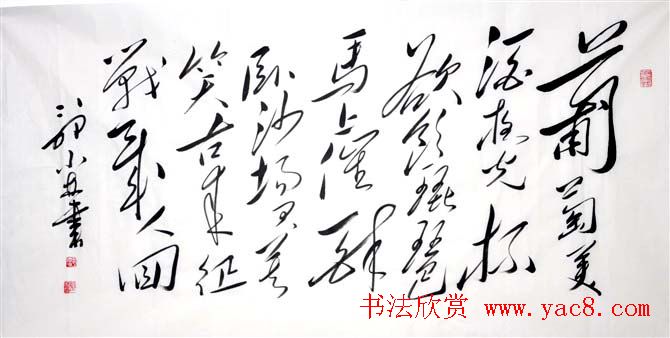 葡萄美
酒夜光杯
欲飲琵琶
馬上催醉
臥沙場君莫
笑古来征
戰幾人回
書
书法欣赏 www.yac8.com